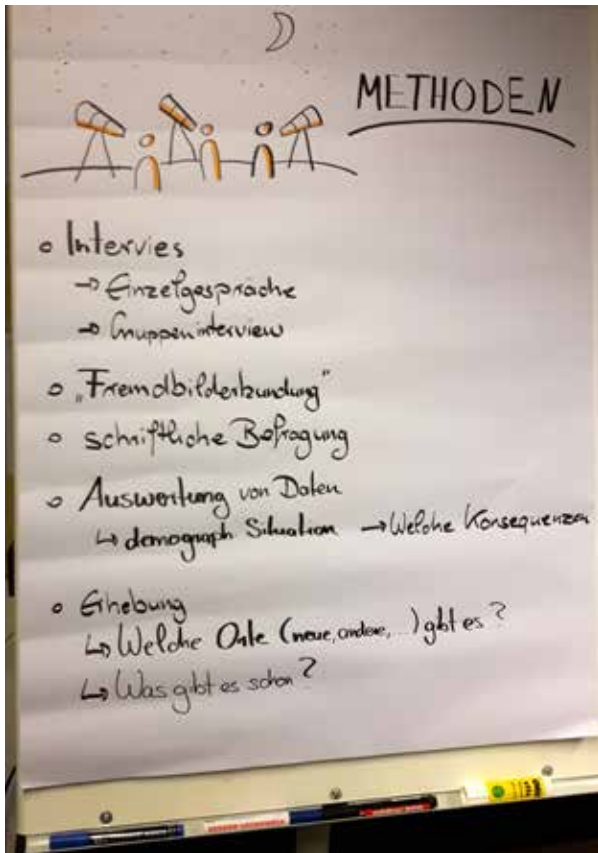 METHODEN
o Intervies
→ Einzelgespräche
→ Gruppeninterview
o „Fremdbilderkundung"
o schriftliche Befragung
o Auswertung von Daten
↳ demograph Situation → Welche Konsequenzen
o Erhebung
↳ Welche Orte (neue, andere, ...) gibt es?
↳ Was gibt es schon?